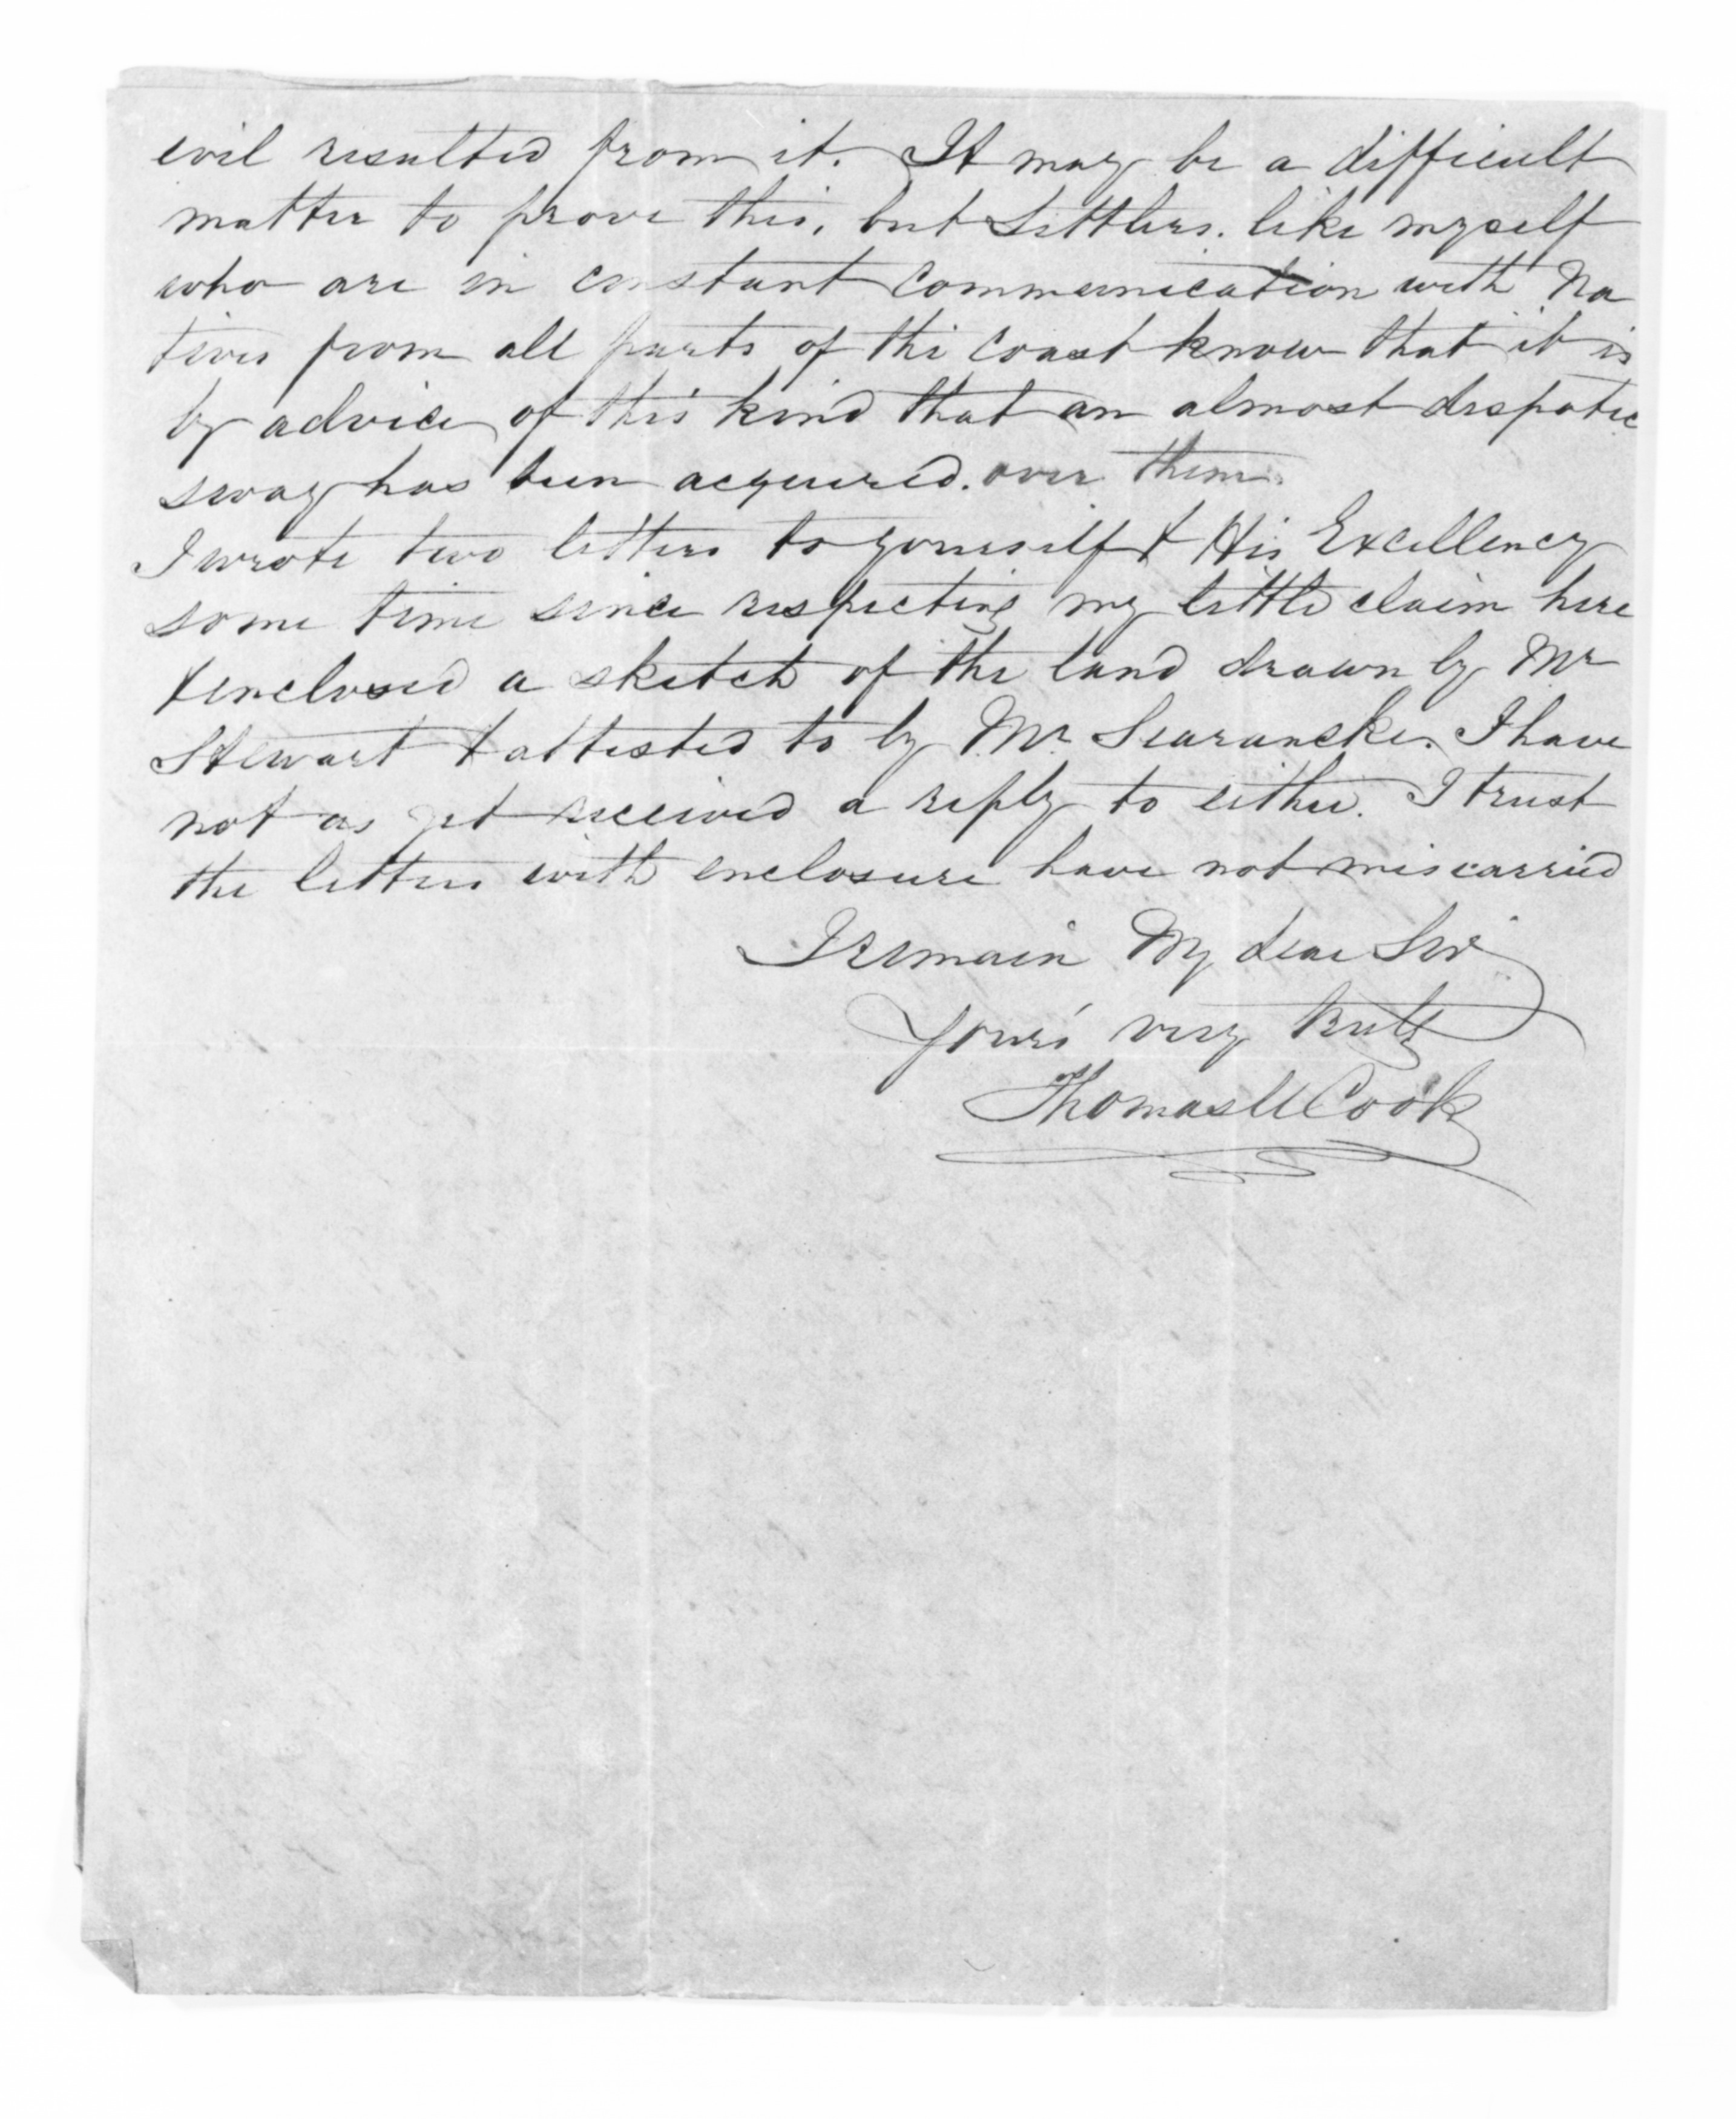 evil resulted from it. It may be a difficult
matter to prove this, but Settlers. like myself
who are in constant communication with Na
tives from all parts of the coast know that it is
by advice of this kind that an almost despotic
sway has been acquired. over them.
I wrote two letters to yourself & His Excellency
some time since respecting my little claim here
& enclosed a sketch of the land drawn by Mr
Stewart & attested to by Mr Searancke. I have
not as yet received a reply to either. I trust
the letters with enclosure have not miscarried
I remain My dear Sir
Yours very truly
Thomas U Cook